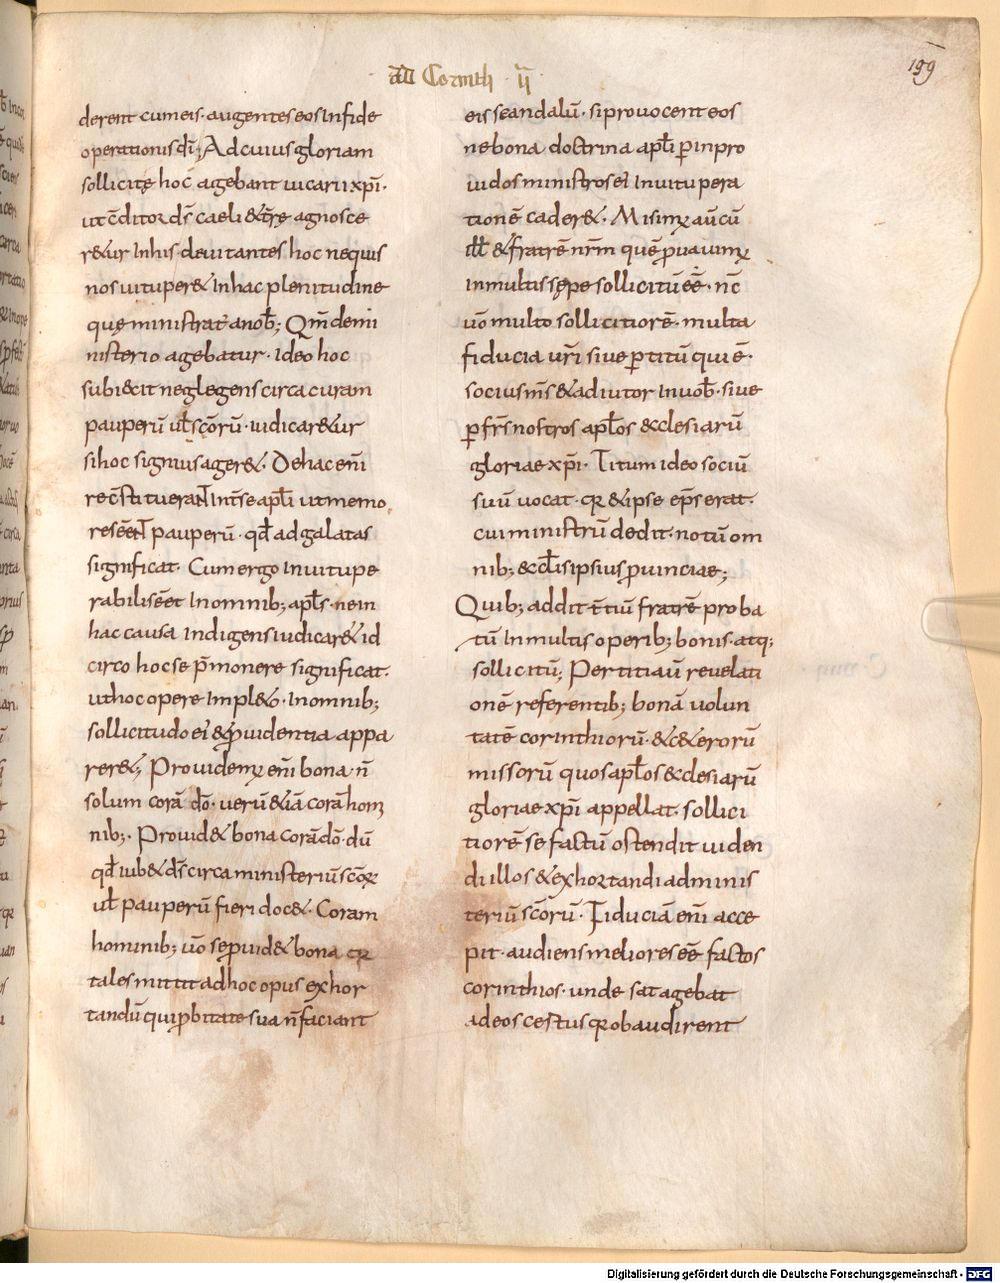 ad Corinth · ii
199
derent cum eis · augentes eos in fide
operationis dī; Ad cuius gloriam
sollicite hoc agebant uicarii xpī ·
ut c̄ditor dś caeli & t̄rę agnosce
r&ur in his · deuitantes hoc ne quis
nos uituper& in hac plenitudine
quę ministrat᷑ a nob̄; Qm̄ de mi
nisterio agebatur · Ideo hoc
subi&cit neglegens circa curam
pauperū ul̄ sc̄orū · iudicar&ur
si hoc signius ager& · De hac enī
re c̄stituerant int̄ se apl̄i ut memo
res eēnt pauperū · qd̄ ad galatas
significat · Cum ergo inuitupe
rabilis eēt in omnib; apl̄s · ne in
hac causa indigens iudicar& id
circo hoc se p̄monere significat ·
ut hoc opere impl&o · in omnib;
sollicitudo ei & ꝓuidentia appa
rer&; Prouidemꝰ enī bona · n̄
solum corā dō · uerū &iā corā homi
nib; · Prouid& bona corā dō · dū
qd̄ iub& dś circa ministeriū sc̄oꝝ
ul̄ pauperū fieri doc& · Coram
hominib; uō se ꝓuid& bona qꝛ
tales mittit ad hoc opus exhor
tandū qui ꝓbitate sua n̄ faciant
eis scandalū · si prouocent eos
ne bona doctrina apl̄i ꝑ inpro
uidos ministros ei in uitupera
tionē cader& · Misimꝰ aū cū
ill̄ & fratrē nr̄m quē ꝓuauimꝰ
in multis sępe sollicitū eē · nc̄
uō multo sollicitiorē · multa
fiducia ur̄i siue ꝑ titū qui ē ·
socius m̄s & adiutor in uob̄ · siue
ꝑ fr̄s nostros apl̄os &cclesiarū
gloriae xpī · Titum ideo sociū
suū uocat · qꝛ & ipse ep̄s erat ·
cui ministrū dedit · notū om
nib; &cl̄is ipsius ꝓuinciae;
Quib; addit t̄tiū fratrē proba
tū in multis operib; bonis · atq;
sollicitū; Per titi aū reuelati
onē referentib; bonā uolun
tatē corinthiorū · & c&erorū
missorū quos apl̄os &cclesiarū
gloriae xpī appellat · sollici
tiorē se factū ostendit uiden
di illos & exhortandi ad minis
teriū sc̄orū · Fiduciā enī acce
pit · audiens meliores eē factos
corinthios · unde satagebat
ad eos cestus qꝛ obaudirent
Digitalisierung gefördert durch die Deutsche Forschungsgemeinschaft - DFG